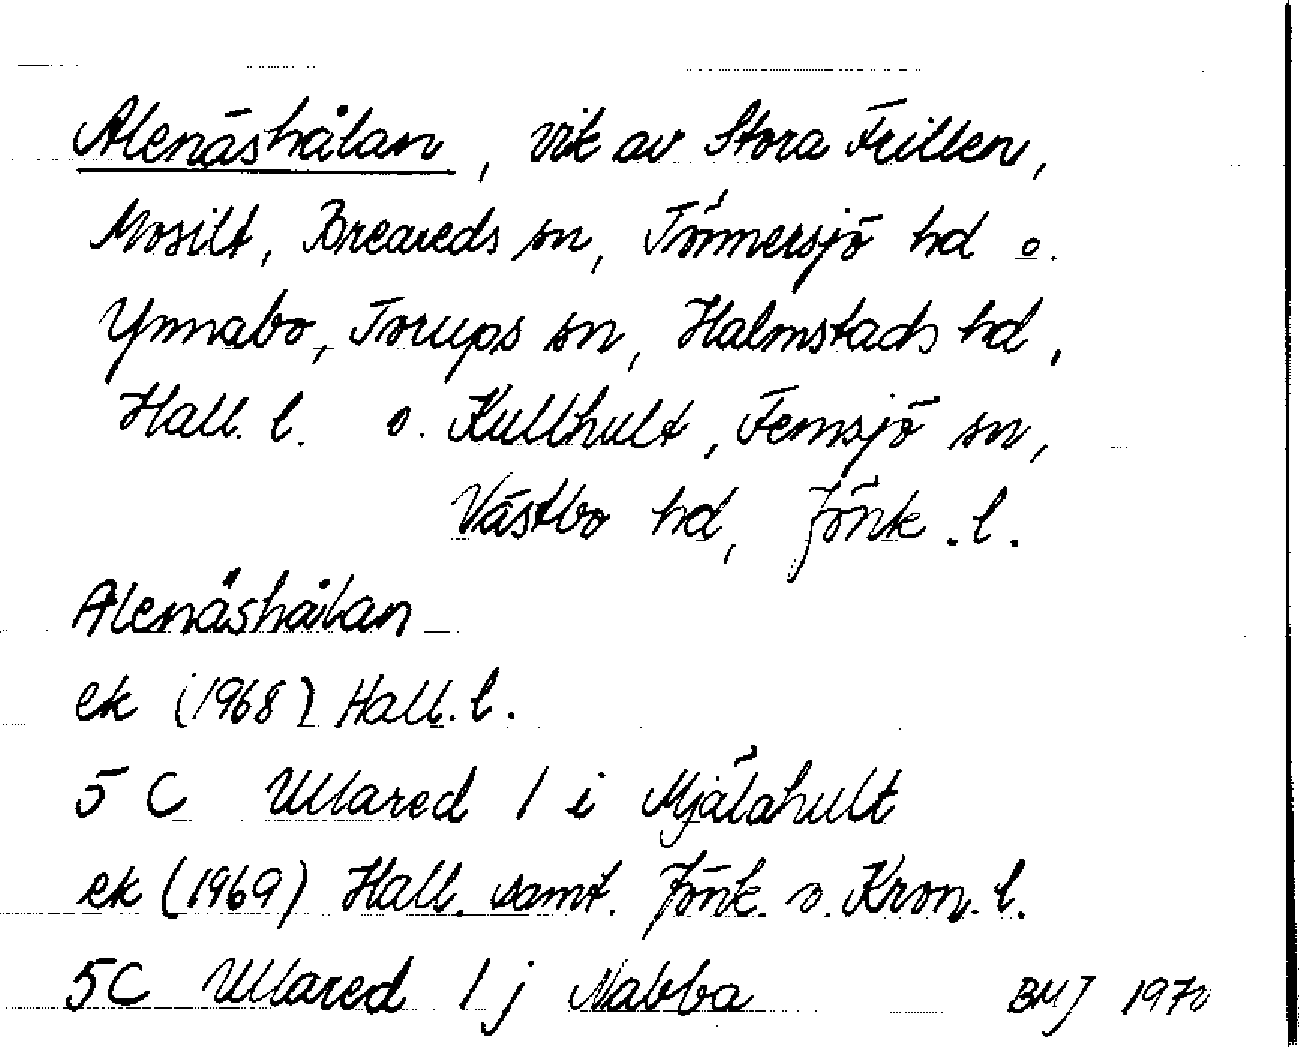 Alenäshålan, vik av Stora Frillen,
Mosilt, Breareds sn, Tönnersjö hd o.
Ynnabo, Torups sn, Halmstads hd,
Hall. l. o. Kullhult, Femsjö sn,
Västbo hd, Jönk. l.
Alenäshålan
ek (1968) Hall. l.
5 C Ullared 1 i Mjälahult
ek (1969) Hall. samt. Jönk. o. Kron. l.
5C Ullared 1 j Nabba BMJ 1970